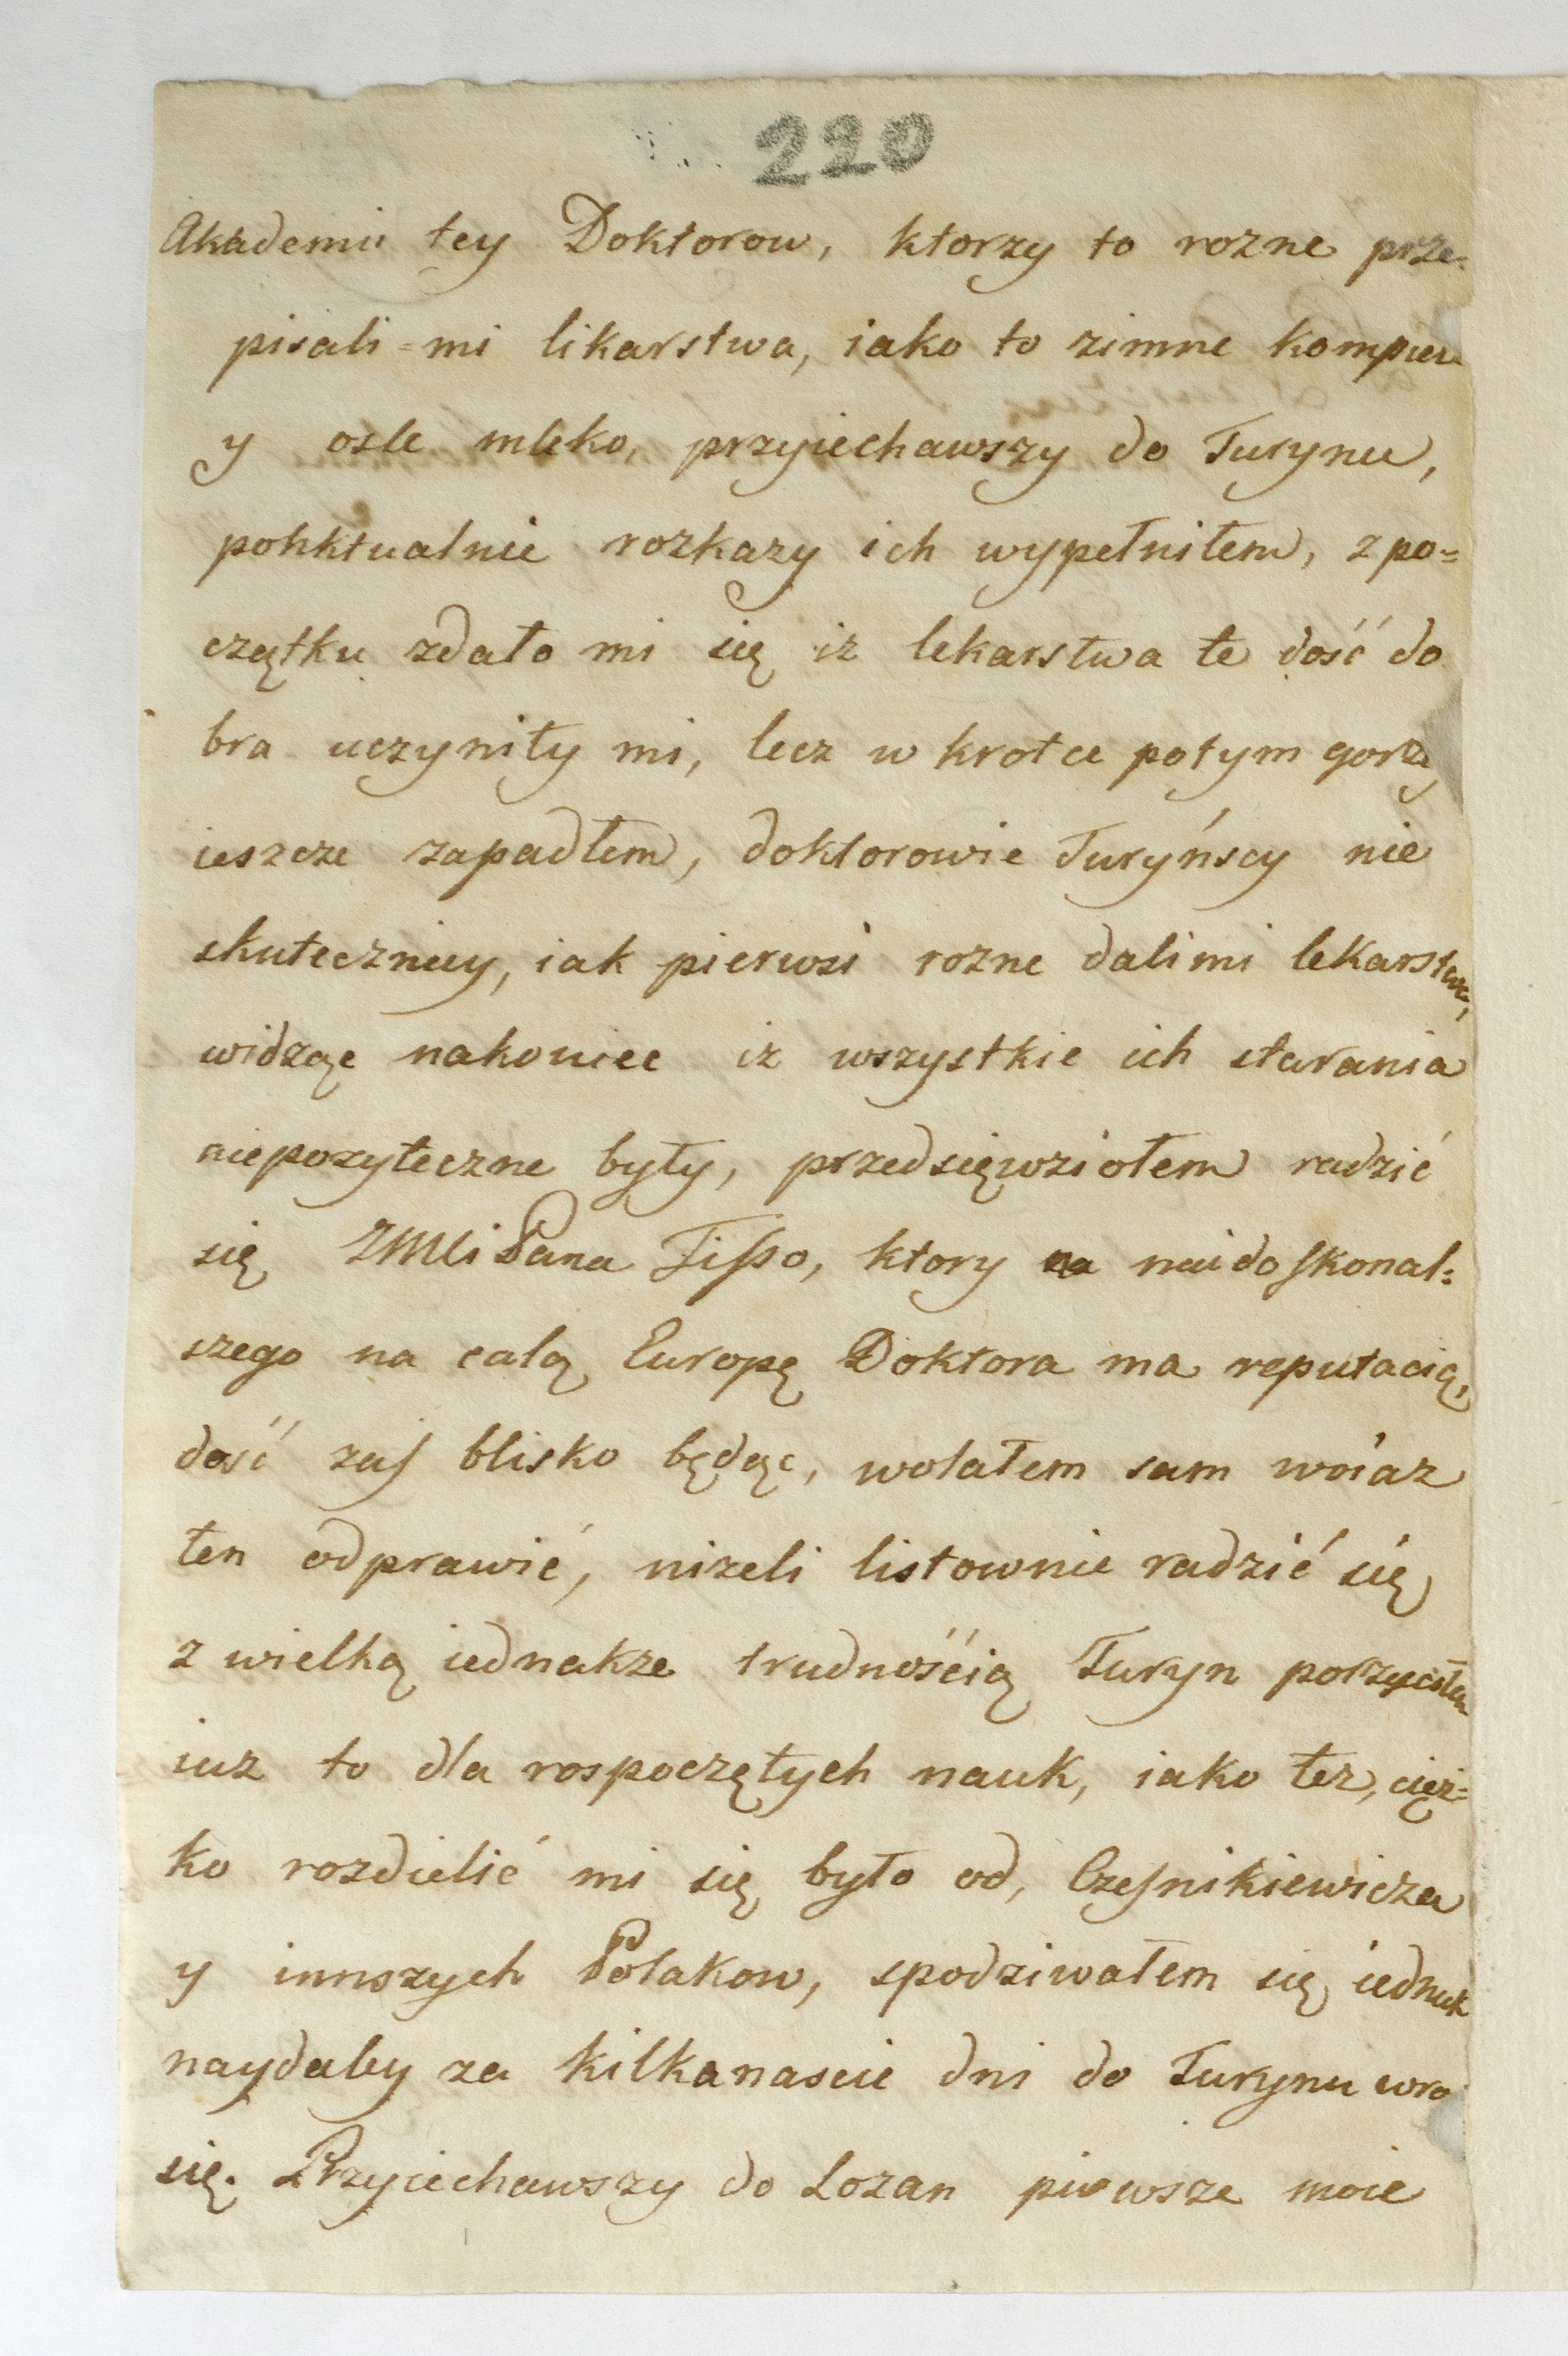 220
Akademii tey Doktorow, ktorzy to rozne prze-
pisali=mi likarstwa, iako to zimne kompiele
y osle mleko, przyiechawszy do Turynu,
ponktualnie rozkazy ich wypełniłem, z po=
czętku zdało mi się iz lekarstwa te dość do
bra uczyniły mi, lecz w krotce potym gorzy
ieszcze zapadłem, doktorowie Turyńscy nie
skuteczniey, iak pierwsi rozne dali mi lekarstwa,
widząc nakoniec iz wszystkie ich starania
niepozyteczne były, przedsięwziołem radzić
się JMCi Pana Tisso, ktory na naidoskonal=
szego na całą Europę Doktora ma reputacią,
dość zaś blisko będąc, wolałem sam woiaz
ten odprawić, nizeli listownie radzić się
z wielką iednakze trudnością Turyn porzuciłem
iuz to dla rospoczętych nauk, iako tez, cięz=
ko rozdielić mi się było od, Czesnikiewicza
y innszych Polakow, spodziwałem się iednak
naydaley za kilkanascie dni do Turynu wro
się. Przyiechawszy do Lozan piewsze moie